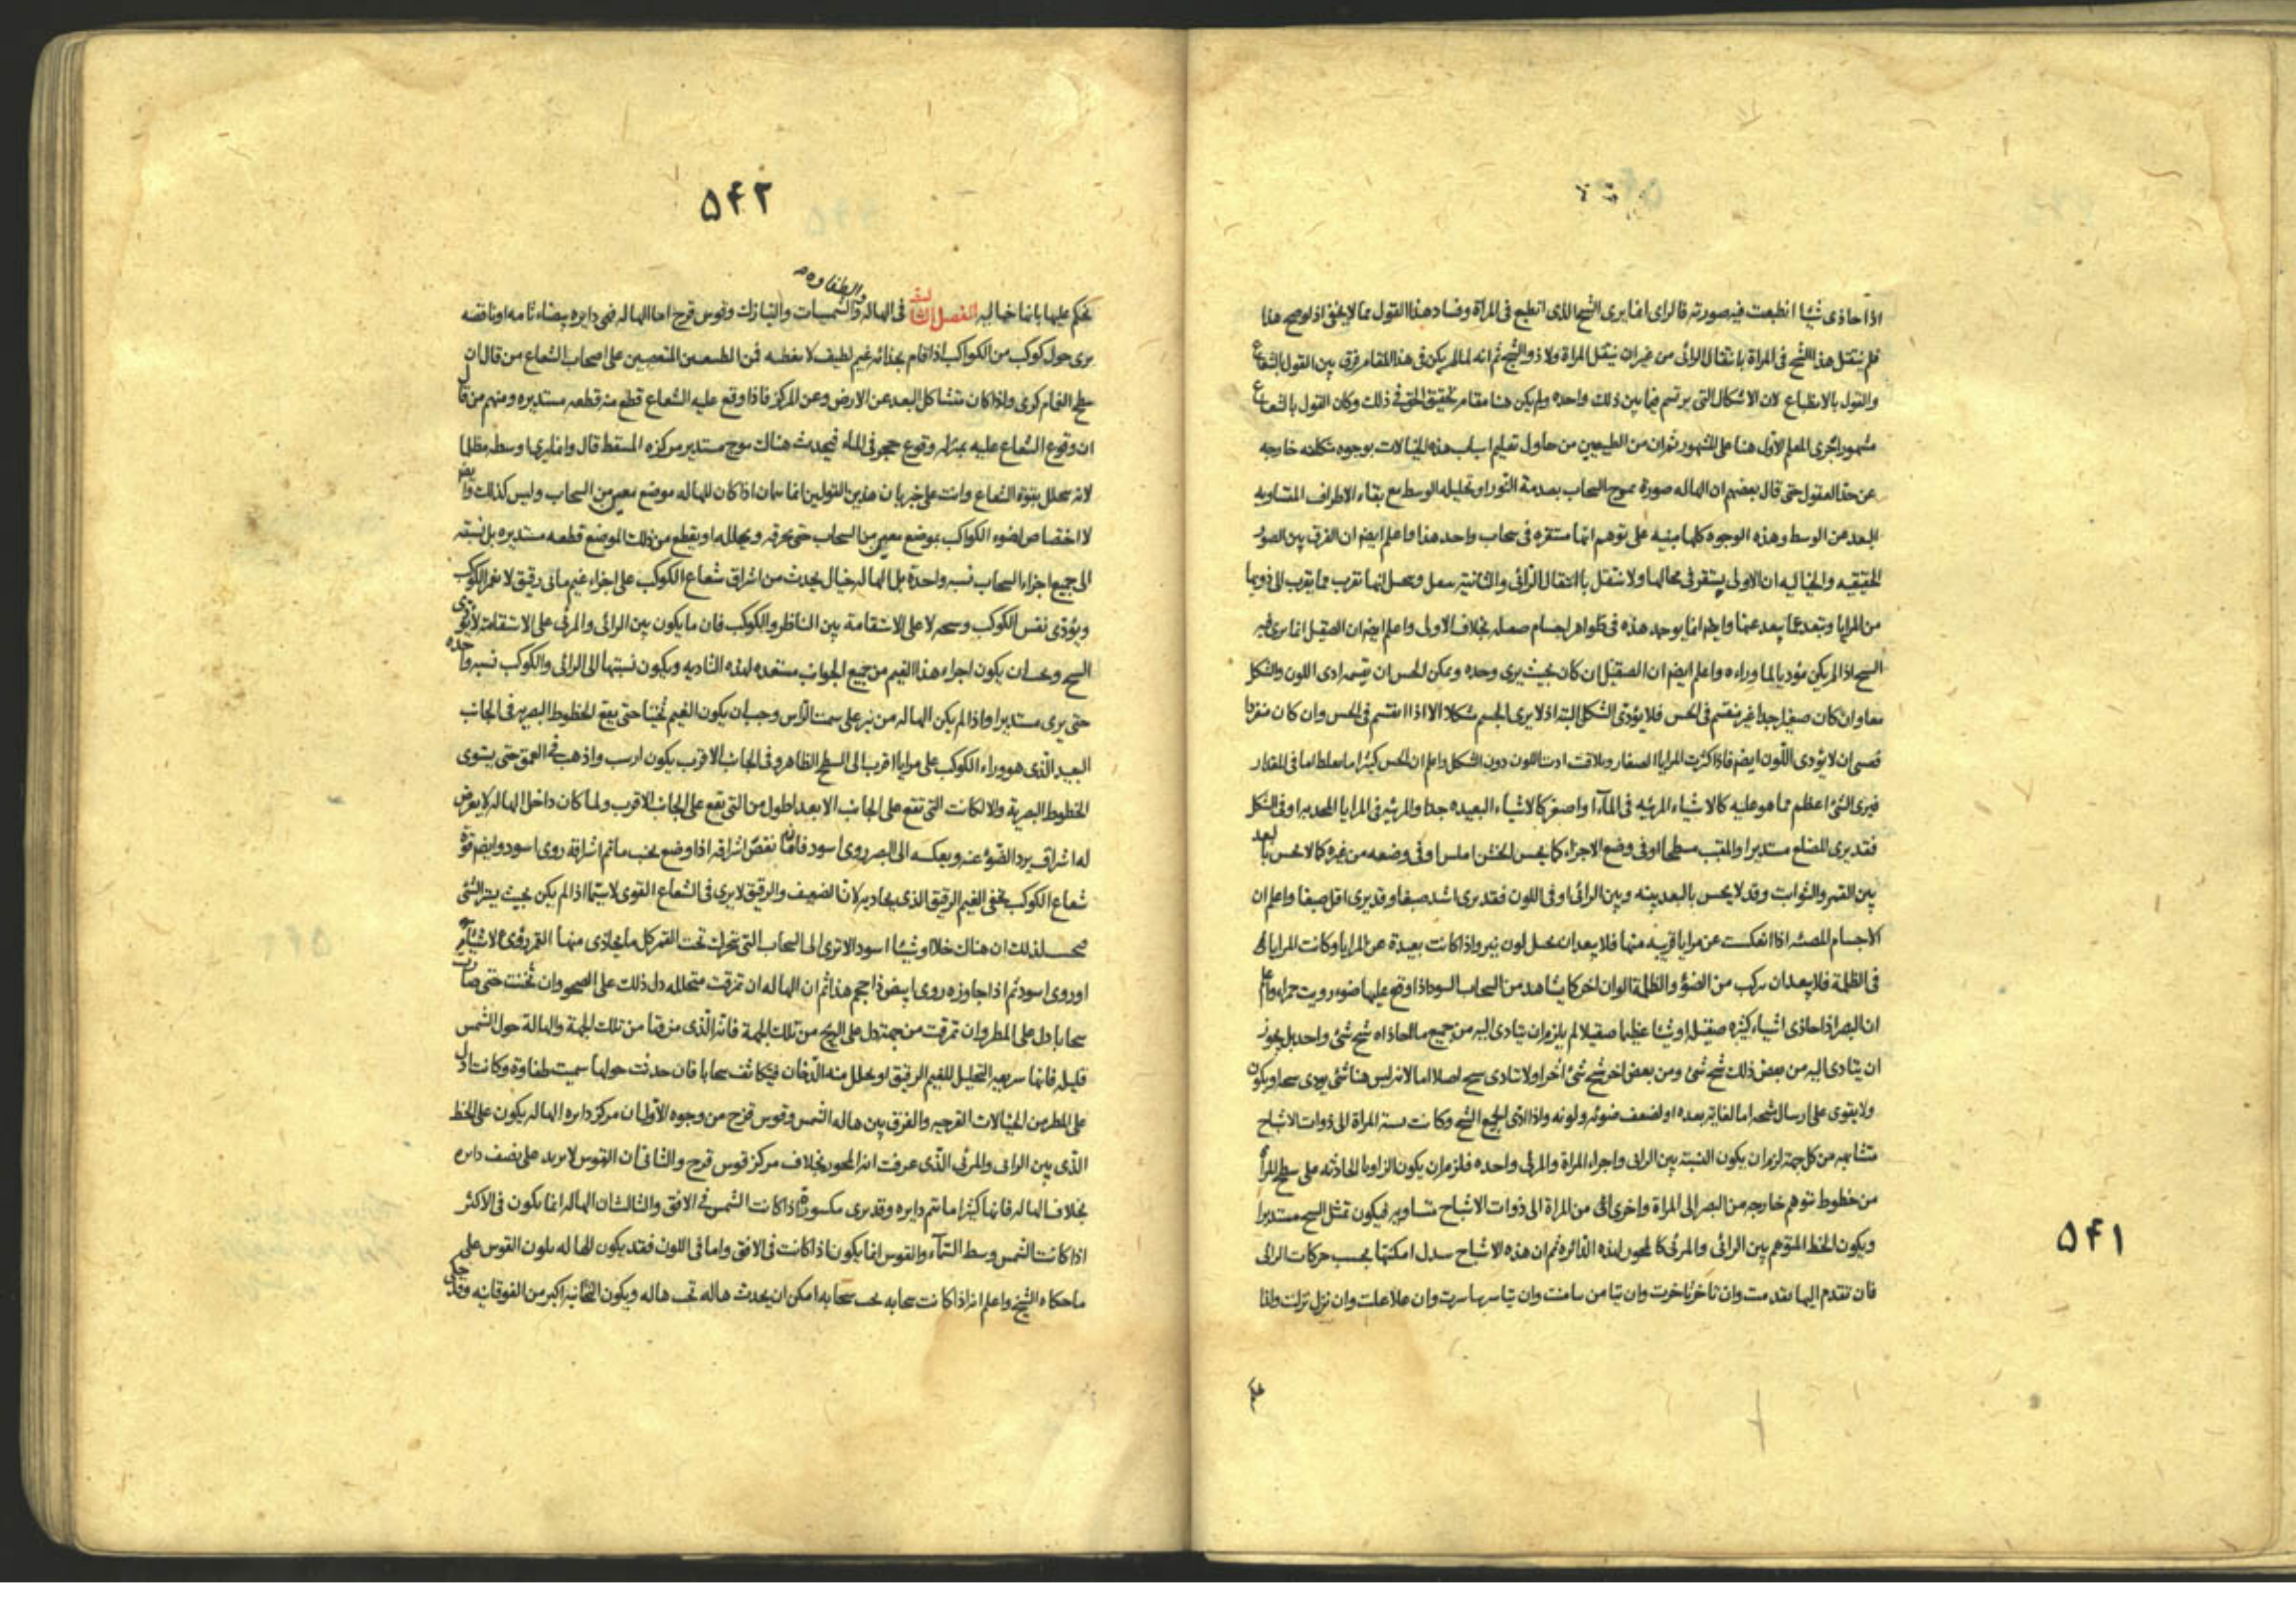 اذا حاذى شيئا انطبعت فيه صورته فالراى انما يرى الشبح الذى انطبع فى المراة وفساد هذا القول مما لا يخفى اذ لو صح هذا
فلم ينتقل هذا الشبح فى المراة بانتقال الرائى من غير ان ينتقل المراة ولا ذو الشبح ثم انه لما لم يكن فى هذا المقام فرق بين القول بالشعاع
والقول بالانطباع لان الاشكال التى يرتسم فيما بين ذلك واحده ولم يكن هنا مقام تحقيق الحق فى ذلك وكان القول بالشعاع
مشهورا جرى المعلم الاول هنا على المشهور ثم ان من الطبيعيين من حاول تعليم اسباب هذه الخيالات بوجوه متكلفه خارجه
عن حذا العقول حتى قال بعضهم ان الهاله صورة تموج السحاب بصدمة النور او تحليله الوسط مع بقاء الاطراف المتساويه
البعد عن الوسط وهذه الوجوه كلها مبنيه على توهم انها مستقره فى سحاب واحد هذا واعلم ايضم ان الفرق بين الصور
الحقيقيه والخياليه ان الاولى يستقر فى محالها ولا ينتقل باانتقال الرائى والثانية انها تقرب مما يقرب الى ذويها
من المرايا وتبعد عما يبعد عنها وايضم انما يوجد هذه فى ظواهر اجسام صقيله بخلاف الاولى واعلم ايضم ان الصقيل انما يرى فيه
الشبح اذا لم يكن مؤديا لما وراءه واعلم ايضم ان الصقيل ان كان بحيث يرى وحده ويمكن الحس ان يقسمه ادى اللون والشكل
معا وان كان صغيرا جدا غير منقسم فى الحس فلا يؤدى الشكل البته اذ لا يرى الجسم شكلا الا اذا انقسم فى الحس وان كان منفردا
فعسى ان لا يؤدى اللون ايضم فاذا كثرت المرايا الصغار وتلاقت ادت اللون دون الشكل واعلم ان الحس كثيرا ما يغلط اما فى المقدار
فيرى الشئ اعظم مما هو عليه كالاشياء المرئيه فى الماء او اصغر كالاشياء البعيده جدا والمرئيه فى المرايا المحدبه او فى الشكل
فقد يرى المضلع مستديرا والمقبب مسطحا او فى وضع الاجزاء كما يحس الخشن املس او فى وضعه من غيره كما لا يحس بالبعد
بين القمر والثوابت وقد لا يحس بالبعد بينه وبين الرائى او فى اللون فقد يرى اشد صبغا وقد يرى اقل صبغا واعلم ان
الاجسام المضيئه اذا انعكست عن مرايا قريبه منها فلا يبعد ان يخيل لون نير واذا كانت بعيدة عن المرايا وكانت المرايا
فى الظلمة فلا يبعد ان يركب من الضوء والظلمة الوان اخر كما يشاهد من السحاب السود اذا وقع عليها ضوء رويت حمراء واعلم
ان البصر اذا حاذى اشياء كثيره صقيله او شيئا عظيما صقيلا لم يلزم ان يتادى اليه من جميع ما الحاذاه شبح شئ واحد بل يجوز
ان يتادى اليه من بعض ذلك شبح شئ ومن بعض اخر شبح شئ اخر او لا يتادى شبح اصلا اما لانه ليس هنا شئ يودى شبحا او يكون
ولا يقوى على ارسال شبحه اما لغاية بعده او لضعف ضوئه ولونه واذا ادى الجميع الشبح وكانت نسبة المراة الى ذوات الاشباح
متشابهه من كل جهة لزم ان يكون النسبة بين الرائى واجزاء المراة والمرئى واحده فلزم ان يكون الزاويا الحادثه على سطح المراة
من خطوط تتوهم خارجه من البصر الى المراة واخرى من المراة الى ذوات الاشباح متساويه فيكون تمثل الشبح مستديرا
ويكون الخط المتوهم بين الرائى والمرئى كالمحور لهذه الدائره ثم ان هذه الاشباح تبدل امكنتها بحسب حركات الرائى
فان تقدم اليها تقدمت وان تاخر تاخرت وان تيامن تيامنت وان تياسر تياسرت وان علا علت وان نزل نزلت ولذا
۵۴۱
۵۴۲
نحكم عليها بانها خياليه الفصل الثالث فى الهاله والطفاوه والشميسات والنيازك وقوس قزح اما الهاله فهى دايره بيضاء تامه او ناقصه
يرى حول كوكب من الكواكب اذا قام بحذائه غيم لطيف لا يغطيه فمن الطبيعيين المتعصبين على اصحاب الشعاع من قال ان
سطح الغمام كرى واذا كان متشاكل البعد عن الارض وعن المركز فاذا وقع عليه الشعاع قطع منه قطعه مستديره ومنهم من قال
ان وقوع الشعاع عليه بمنزله وقوع حجر فى الماء فيحدث هناك موج مستدير مركزه المسقط قال وانما يرى وسطه مظلما
لانه يتحلل بقوة الشعاع وانت على خبر بان هذين القولين انما يتمان اذا كان للهاله موضع معين من السحاب وليس كذلك وايضم
لا اختصاص لضوء الكواكب بموضع معين من السحاب حتى يخرقه ويحلله او يقطع من ذلك الموضع قطعه مستديره بل نسبته
الى جميع اجزاء السحاب نسبه واحدة بل الهاله خيال يحدث من اشراق شعاع الكوكب على اجزاء غيم مائى رقيق لا يغمر الكوكب
ويؤدى نفس الكوكب وشبحه لا على الاستقامة بين الناظر والكوكب فان ما يكون بين الرائى والمرئى على الاستقامه لا يؤدى
الشبح ويجب ان يكون اجزاء هذا الغيم من جميع الجوانب مستعده لهذه التاديه ويكون نسبتها الى الرائى والكوكب نسبه واحده
حتى يرى مستديرا واذا لم يكن الهاله من نير على سمت الراس وجب ان يكون الغيم ثخينا حتى يقع الخطوط البصريه فى الجانب
البعيد الذى هو وراء الكوكب على مرايا اقرب الى السطح الظاهر وفى الجانب الاقرب يكون ارسب واذهب فى العمق حتى يستوى
الخطوط البصرية والا لكانت التى تقع على الجانب الابعد اطول من التى يقع على الجانب الاقرب ولما كان داخل الهاله لا يعرض
له اشراق يرد الضوء عنه ويعكسه الى البصر روى اسود فانه نقص اشراقه اذا وضع بجنب ما تم اشراقه روى اسود وايضم قوة
شعاع الكوكب يخفى الغيم الرقيق الذى يحاذيه لان الضعيف والرقيق لا يرى فى الشعاع القوى لا سيما اذا لم يكن بحيث يستر الشئ
فيتخيل لذلك ان هناك خلاا وشيئا اسود الا ترى الى السحاب التى يتحرك تحت القمر كل ما يحاذى منها القمر روى لا شيئا
او روى اسود ثم اذا جاوزه روى ابيض ذا حجم هذا ثم ان الهاله ان تمزقت متحلله دل ذلك على الصحو وان ثخنت حتى صارت
سحابا دل على المطر وان تمزقت من جهة دل على الريح من تلك الجهة فانه الذى مزقها من تلك الجهة والهالة حول الشمس
قليله فانها سريعه التحليل للغيم الرقيق او يحلل منه الدخان فيتكاثف سحابا فان حدثت حولها سميت طفاوة وكانت ادل
على المطر من الخيالات القزحيه والفرق بين هاله الشمس وقوس قزح من وجوه الاول ان مركز دايره الهاله يكون على الخط
الذى بين الرائى والمرئى الذى عرفت انه المحور بخلاف مركز قوس قزح والثانى ان القوس لا يزيد على نصف دايره
بخلاف الهاله فانها كثيرا ما تتم دايره وقد يرى مكسورة اذا كانت الشمس فى الافق والثالث ان الهاله انما يكون فى الاكثر
اذا كانت الشمس وسط السماء والقوس انما يكون اذا كانت فى الافق واما فى اللون فقد يكون الهاله بلون القوس على
ما حكاه الشيخ واعلم انه اذا كانت سحابه تحت سحابه امكن ان يحدث هاله تحت هاله ويكون التحتانيه اكبر من الفوقانيه وقد حكى